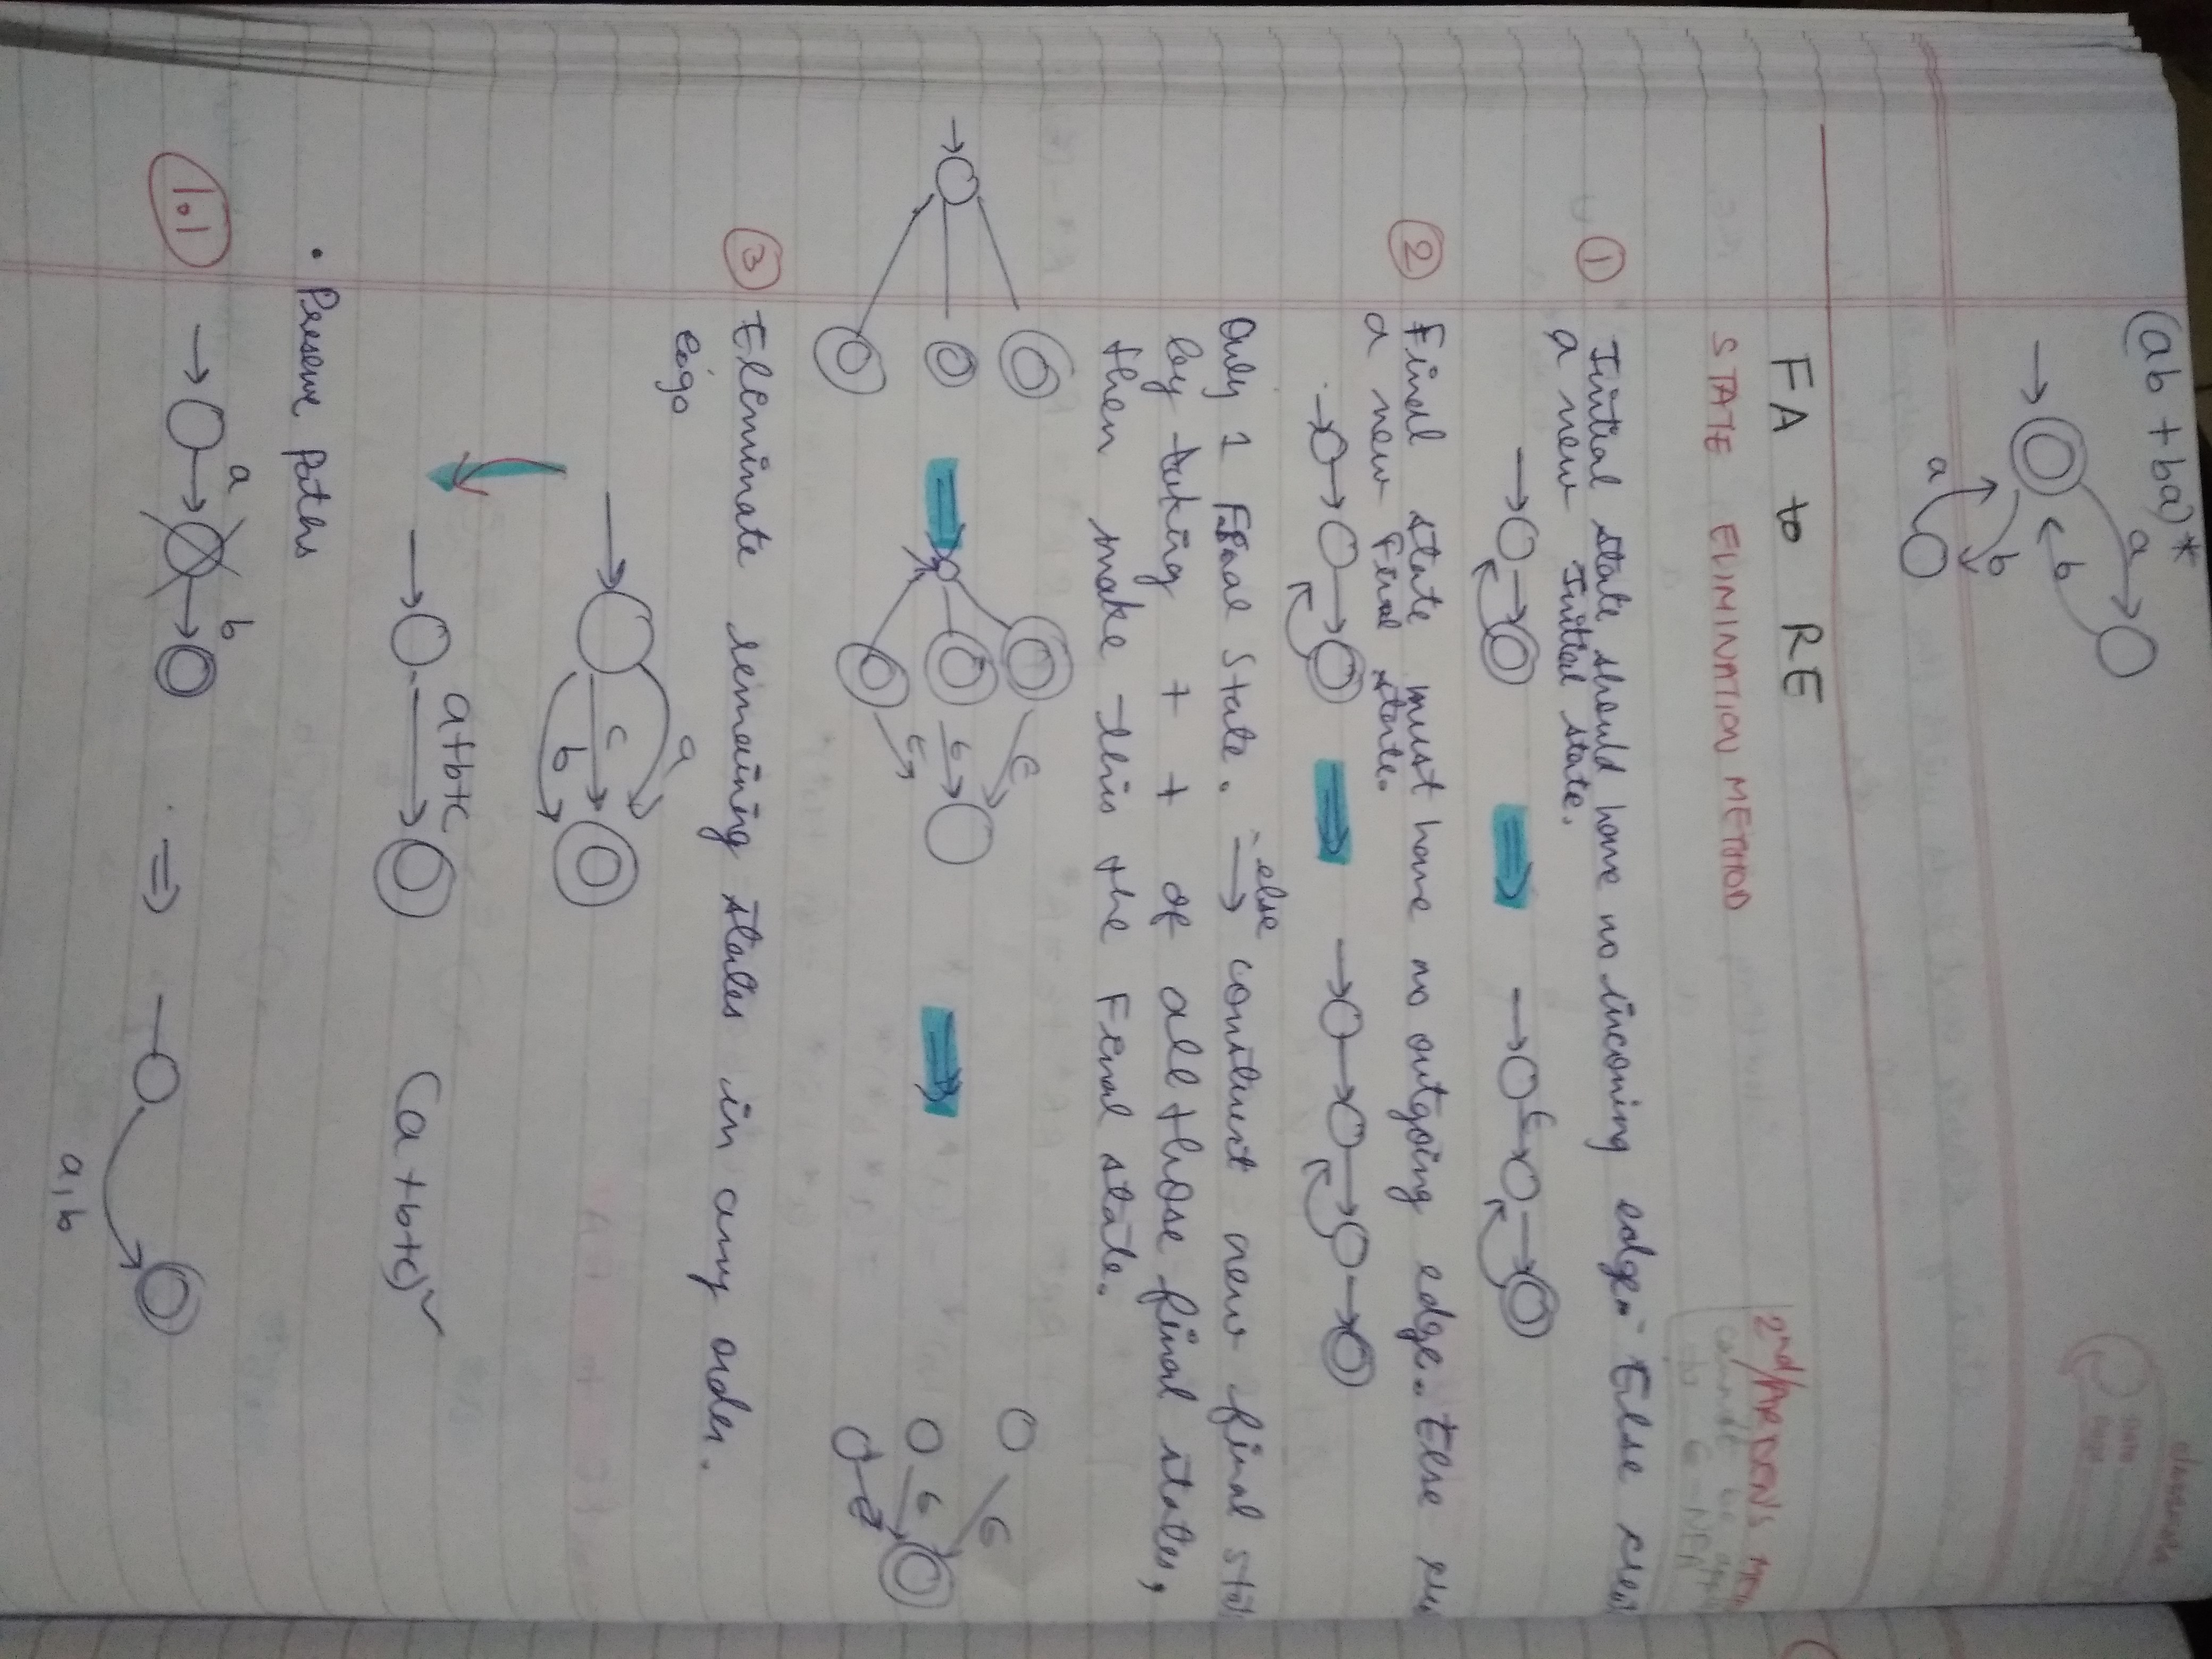 (ab + ba)*
a
b
b
a
FA to RE
2nd/ARDEN'S
STATE ELIMINATION METHOD
① Initial state should have no incoming edge. Else
a new Initial state.
ϵ
② Final state must have no outgoing edge. Else
a new Final state.
Only 1 Final State. else → construct new final
by taking + + of all those final states,
then make this the Final state.
ϵ ϵ
ϵ ϵ
ϵ ϵ
③ Eleminate remaining states in any order.
eigo
a
c
b
a+b+c (a+b+c)
• Preserve Paths
1.1 a b ⇒
a, b